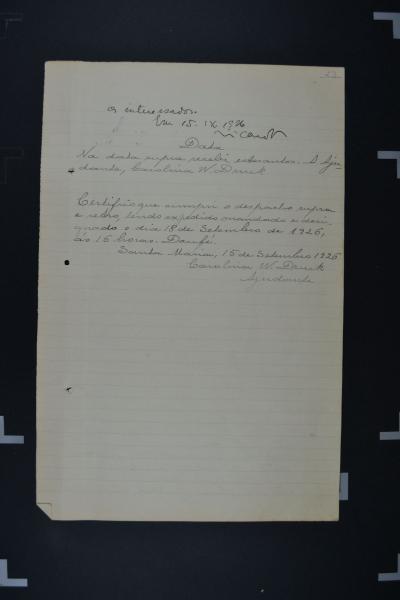 os interessados.
Em 15. IX. 1926
Data
Na data supra recebi estes autos. A Aju-
dante, Carolina W. Druck
Certifico que cumpri o despacho supra
e retro, tendo expedido mandado e desi-
gnado o dia 18 de Setembro de 1926,
ás 15 horas. Dou fé.
Santa Maria, 15 de Setembro 1926
Carolina W. Druck
Ajudante